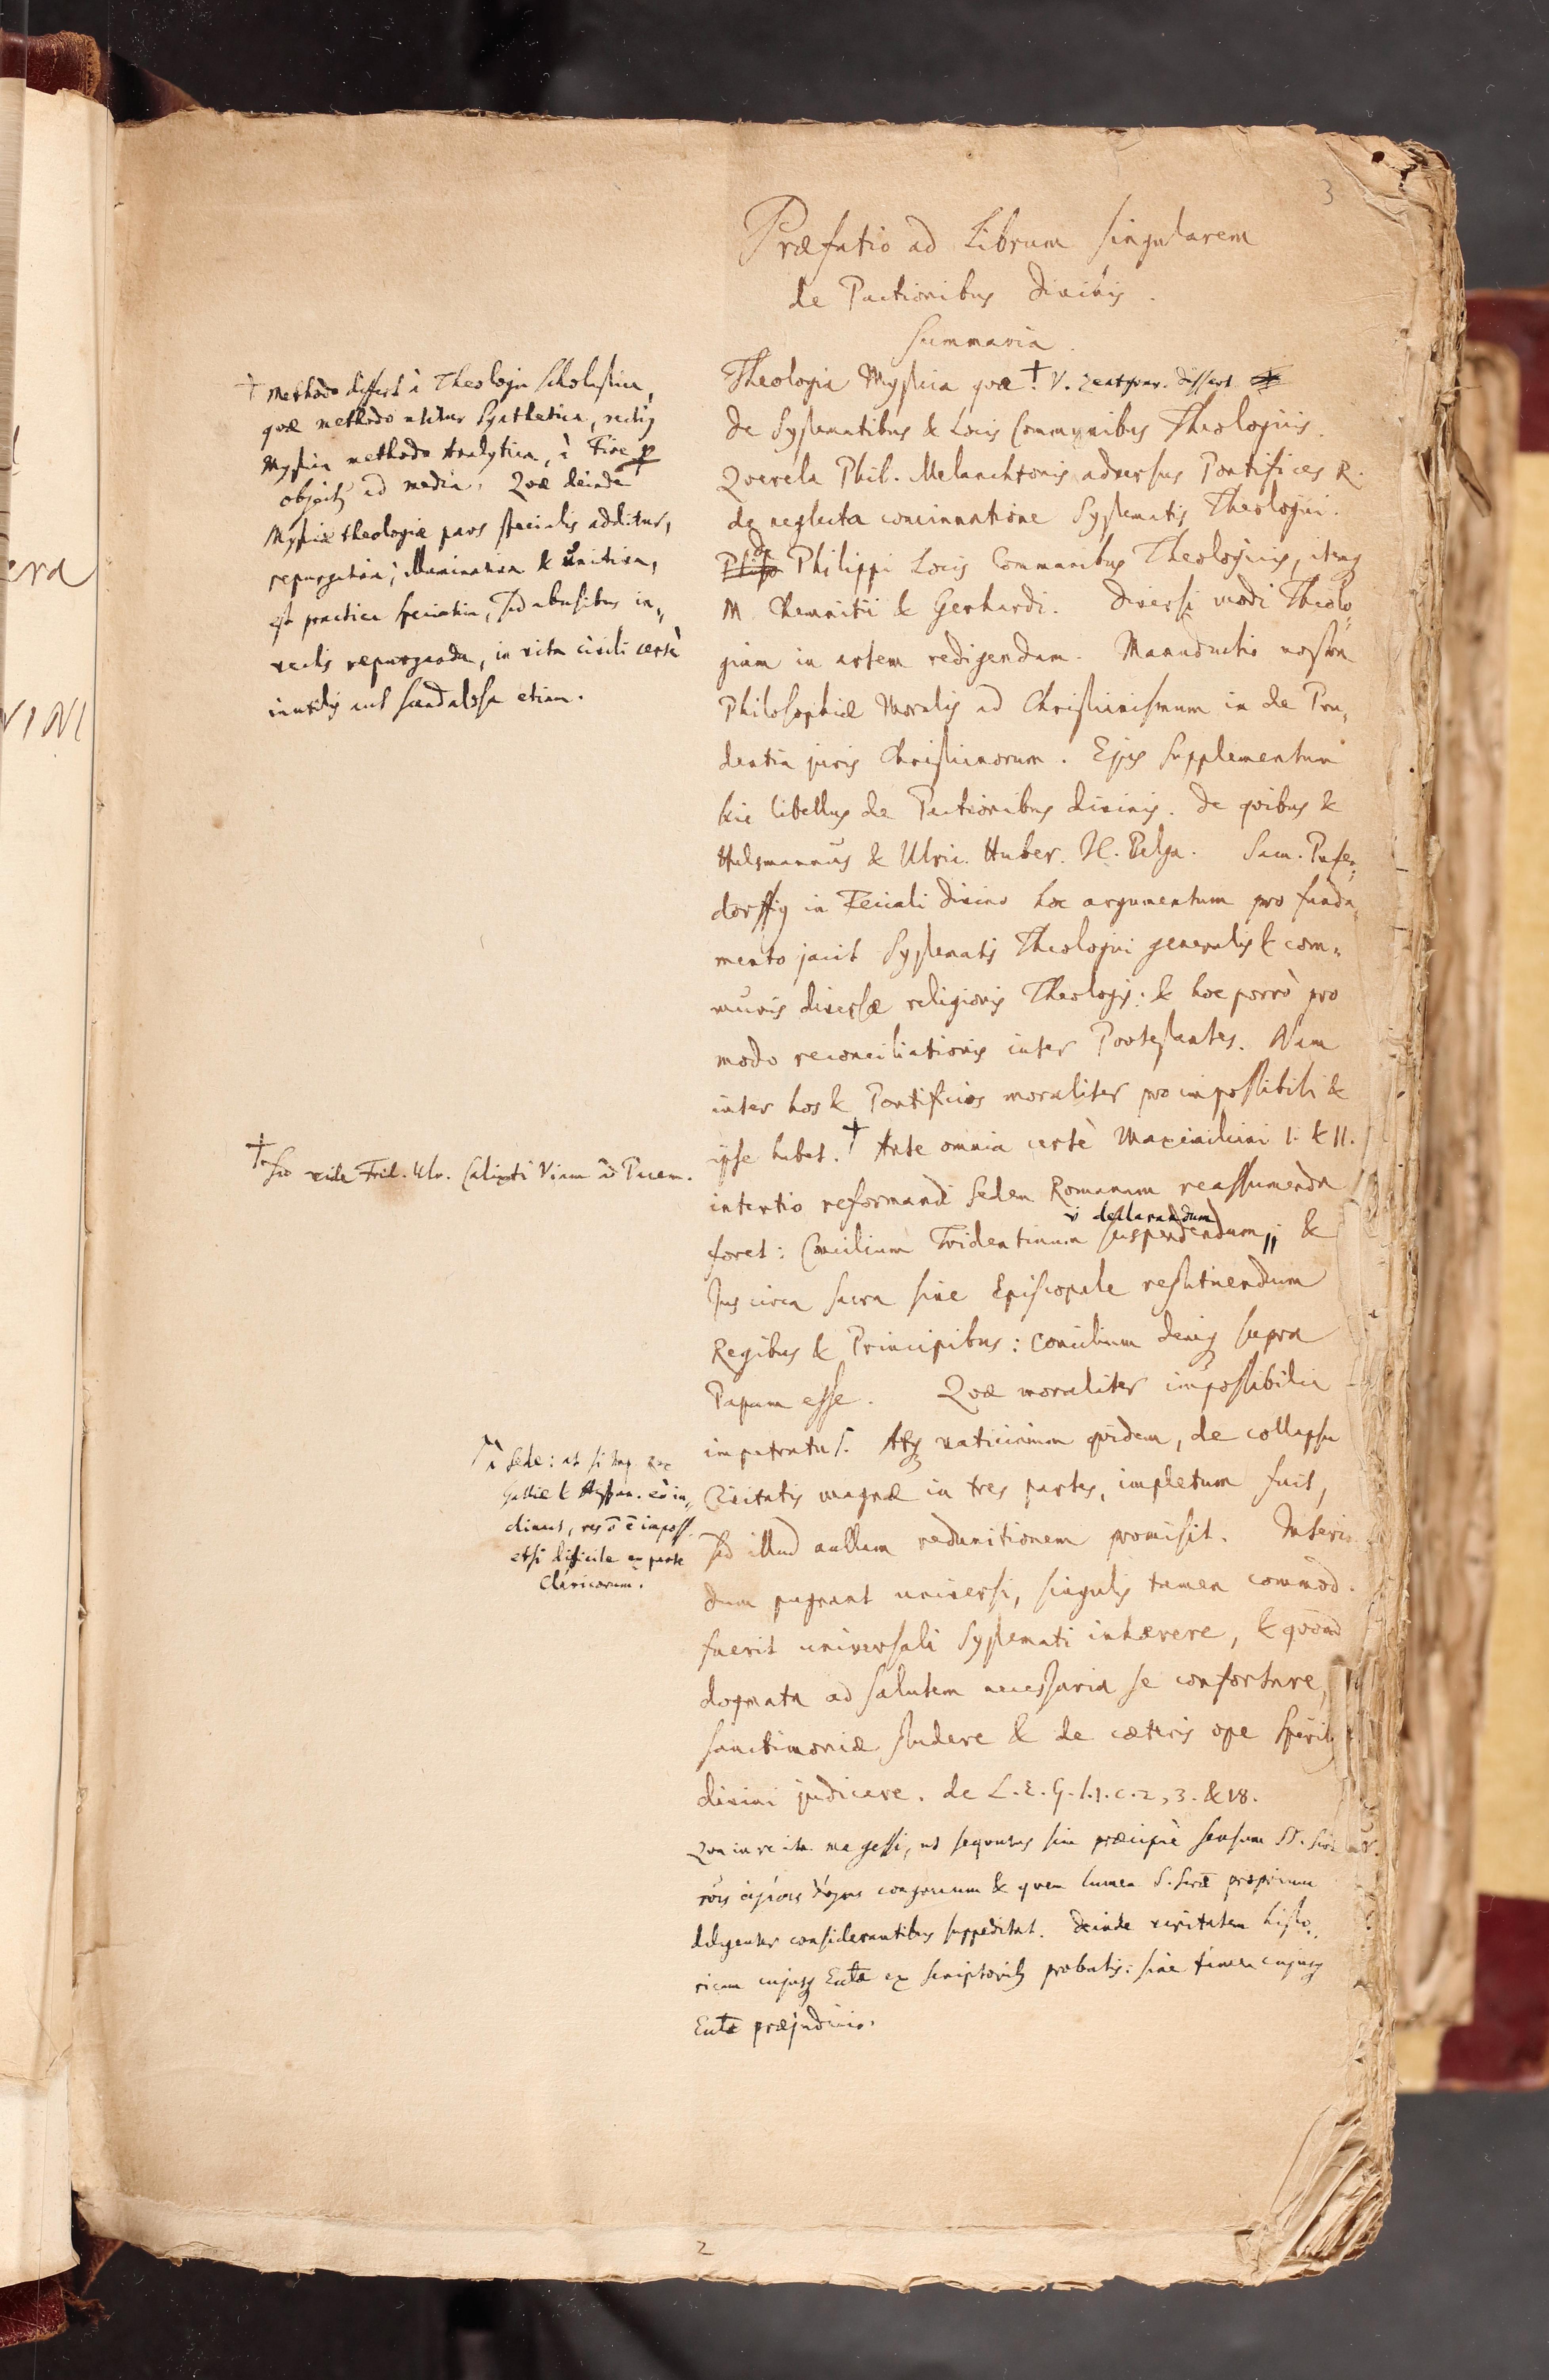 3
Præfatio ad Librum singularem
de Pactionibus Divinis.
Summaria.
Theologia Mystica qvæ † V. dissert.
de Systematibus & Locis Communibus Theologicis.
Qverela Phil. Melanchtonis adversus Pontifices R.
de neglecta concinnatione Systematis Theologici.
de Philippi Locis Communibus Theologicis, itemq
M. Chemnitii & Gerhardi. Diversi modi Theolo„
giam in artem redigendam. Manuductio nostra
Philosophiæ Moralis ad Christianismum in de Pru„
dentia juris Christianorum. Ejus supplementum
hic libellus de Pactionibus divinis. de qvibus &
Hulsmannus & Ulric. Huber. Sam. Pufen„
dorffig in Feciali divino hoc argumentum pro funda„
mento jacit Systematis Theologici generalis & com„
munis diversæ religionis Theologis: & hoc porrò pro
modo reconciliationis inter Protestantes. Nam
inter hos & Pontificios moraliter pro impossibili &
ipse habet. † Ante omnia certè Maximiliani I. & II.
intentio reformandi Sedem Romanam reassumenda
foret: Concilium Tridentinum suspendendum; &
v declarandum
Jus circa sacra sive Episcopale restituendum
Regibus & Principibus: Concilium deniq supra
Papam esse. Qvæ moraliter impossibilia
impetratu s. Atq vaticinium qvidem, de collapsu
Civitatis magnæ in tres partes, impletum fuit,
sed illud nullam redunitionem promisit. Interea
dum pugnant universi, singulis tamen commod.
fuerit universali Systemati inhærere, & qvoad
dogmata ad salutem necessaria se confortare,
sanctimoniæ studere & de cæteris ope Spirit
divini judicare. de L. E. G. l. 1. c. 2, 3. & 18.
Qva in re ita me gessi, ut seqvutus sim præcipuè sensum SS.
congruum & qvem lumen S. Scræ proprium
diligenter considerantibus suppeditat. deinde veritatem histo„
ricam cujusq Ectæ ex scriptorib probatis: sine tamen cujusq
Ectæ præjudicio.
† Methodo differt à Theologia Scholastica,
qvæ methodo utitur Synthetica, rectiq
Mystica methodo Analytica, à Fine
objecti ad media. Qvæ deinde
Mysticæ theologiæ pars specialis additur,
repurgativa, illuminativa & unitiva,
est practica sed abusibus in„
vectis repurganda, in vita civili certè
inutilis aut scandalosa etiam.
† Sed vide Frid. Ulr. Calixti Viam ad Pacem.
à Sede: at si Imp. Rex
Galliæ & Hispan. eò in„
clinent, res ō ē imposs.
etsi difficile ex parte
Clericorum.
2